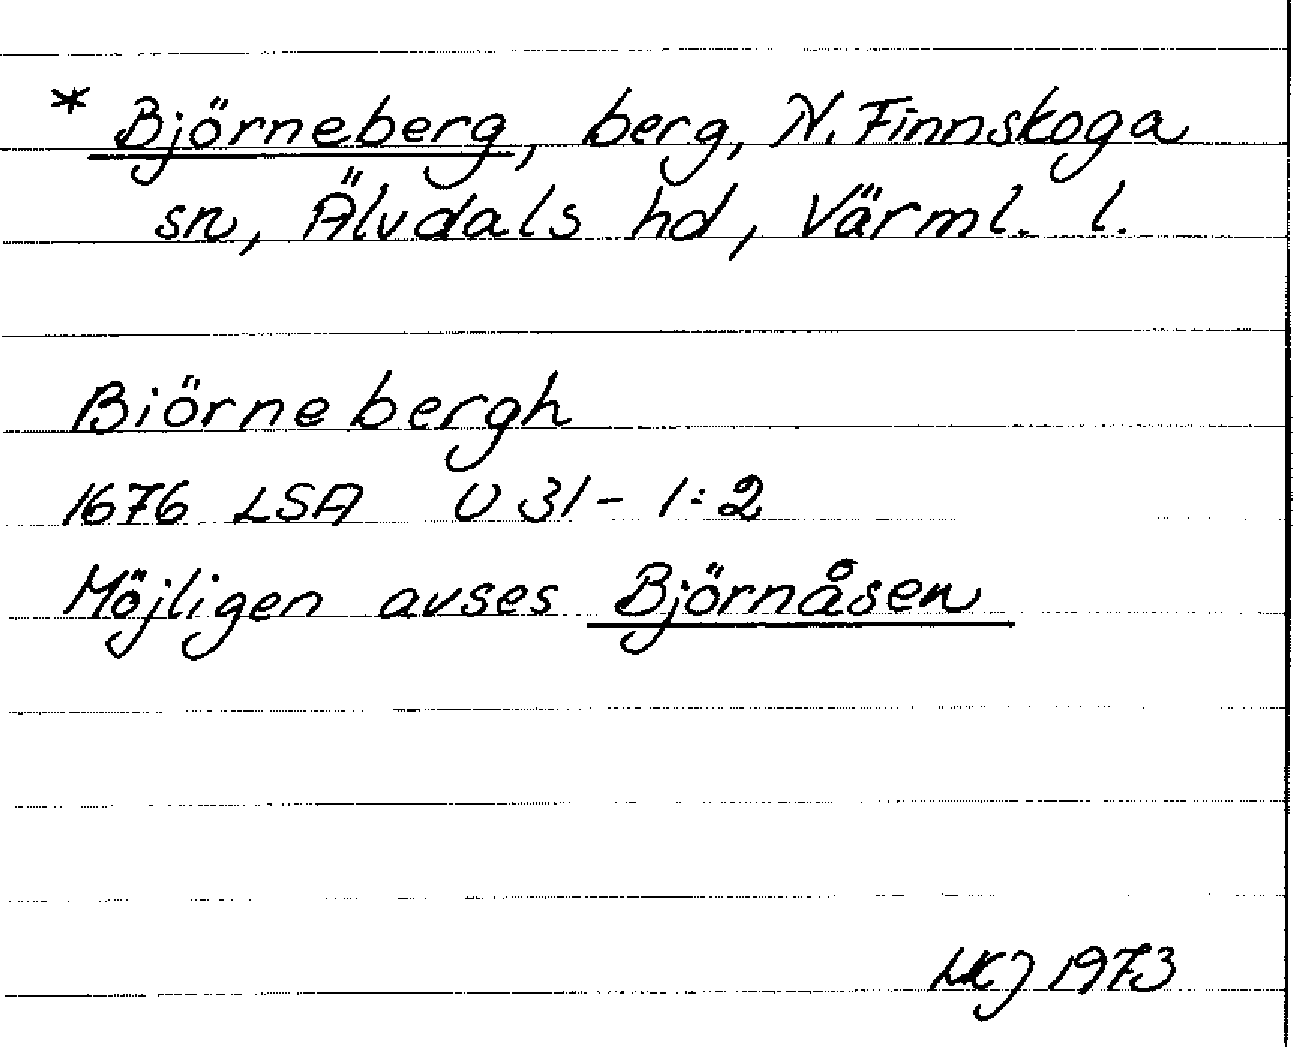 * Björneberg, berg, N. Finnskoga
sn, Älvdals hd, Värml. l.
Biörnebergh
1676 LSA U 31-1:2
Möjligen avses Björnåsen
MKJ 1973